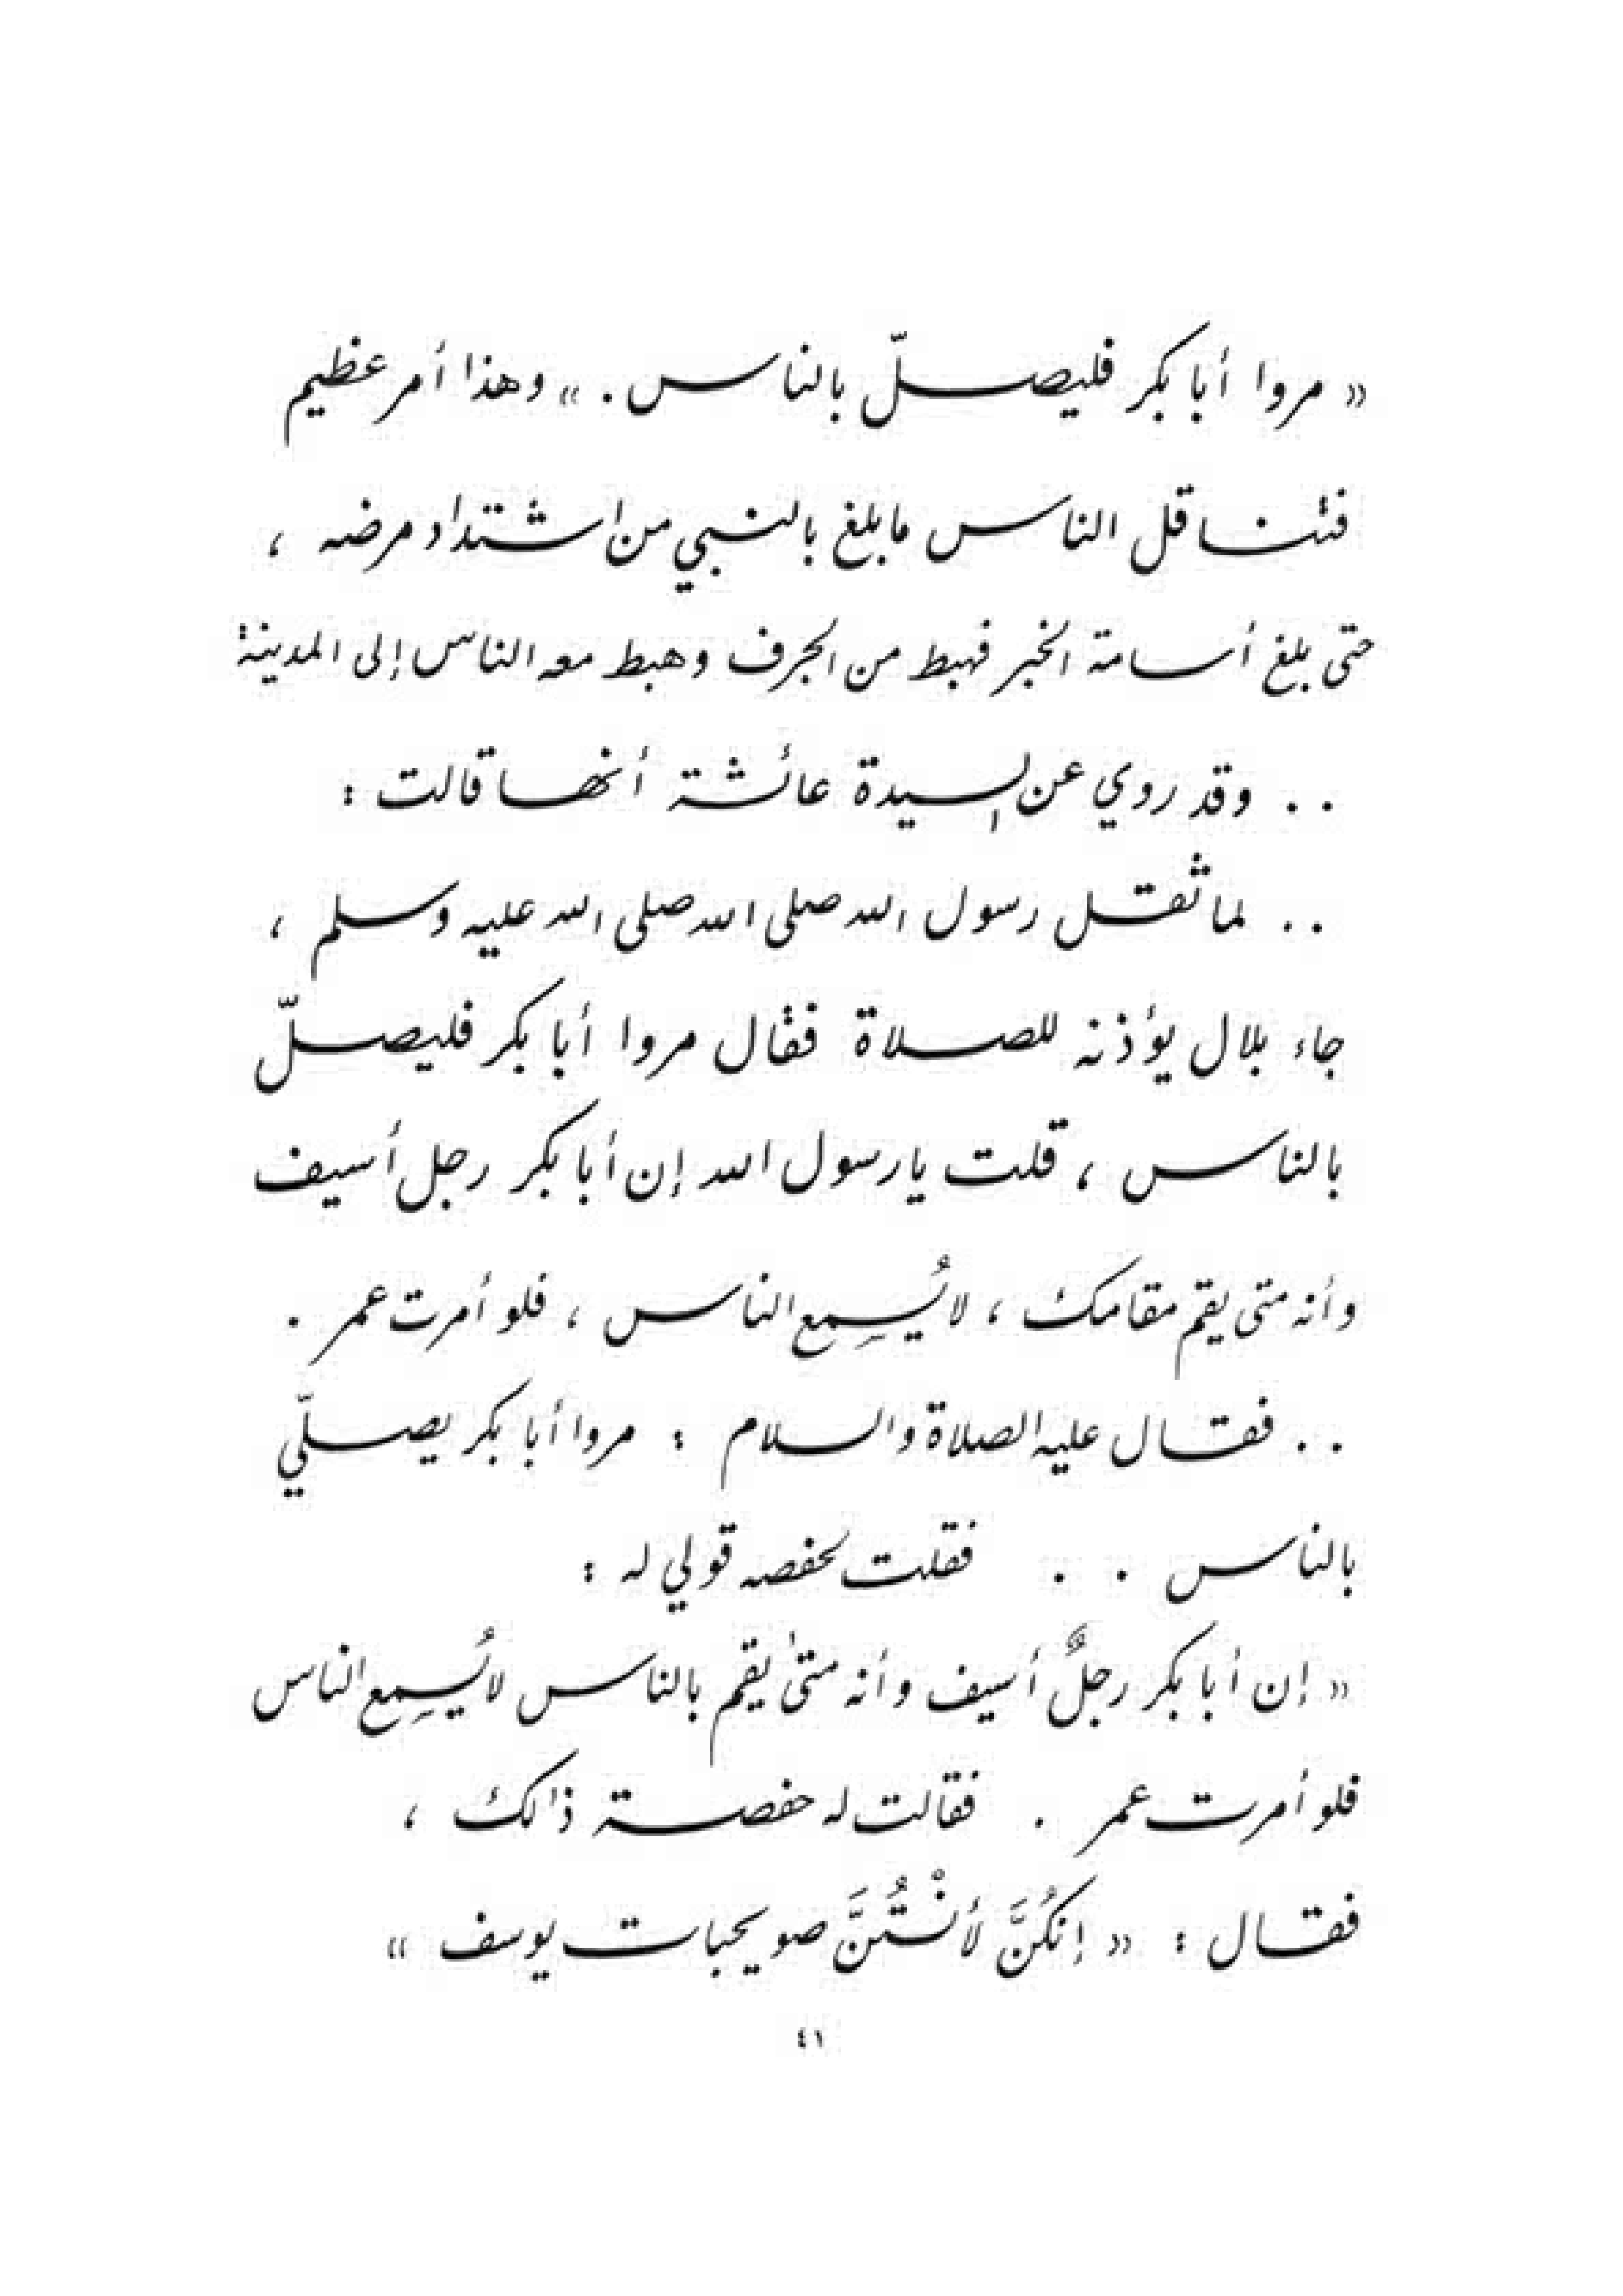 « مروا أبا بكر فليصلّ بالناس . » وهذا أمر عظيم
فتناقل الناس ما بلغ بالنبي من اشتداد مرضه ،
حتى بلغ أسامة الخبر فهبط من الجرف وهبط معه الناس إلى المدينة
. . وقد روي عن السيدة عائشة أنها قالت :
. . لما ثقل رسول الله صلى الله صلى الله عليه وسلم ،
جاء بلال يؤذنه للصلاة فقال مروا أبا بكر فليصلّ
بالناس ، قلت يا رسول الله إن أبا بكر رجل أسيف
وأنه متى يقم مقامك ، لا يُسمِع الناس ، فلو أمرت عمر .
. . فقال عليه الصلاة والسلام : مروا أبا بكر يصلّي
بالناس . . فقلت لحفصه قولي له :
« إن أبا بكر رجلٌ أسيف وأنه متىٰ يقم بالناس لا يُسمِع الناس
فلو أمرت عمر . فقالت له حفصة ذالك ،
فقال : « إنكُنَّ لأنْتُنَّ صويحبات يوسف »
٤١